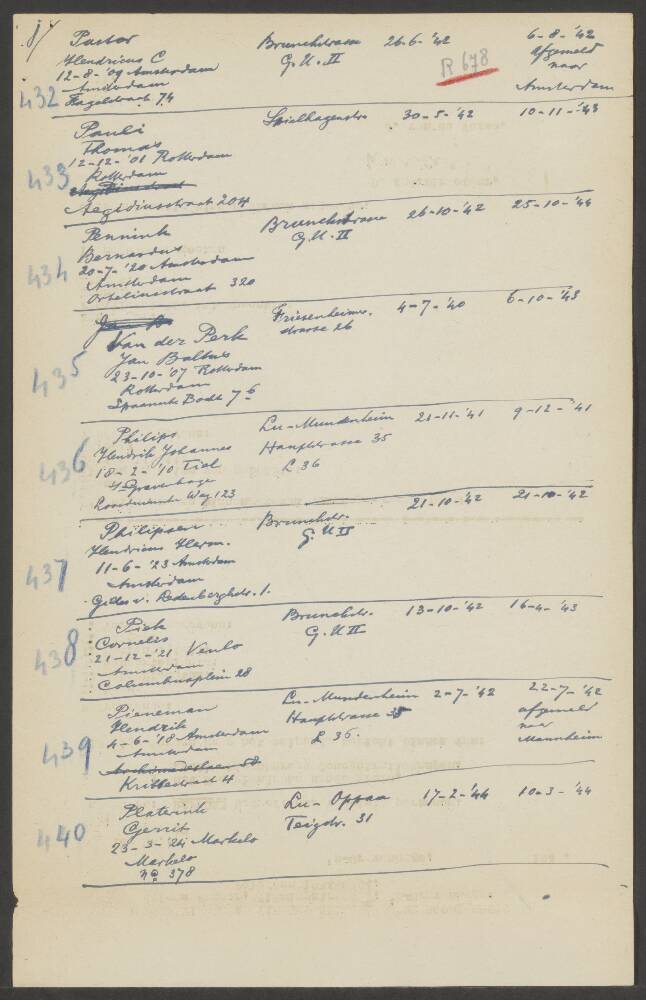 Pastor Brunckstrasse 26-6-'42 6-8-'42
Hendricus C G.U.II afgemeld
12-8-'09 Amsterdam R 678 naar
Amsterdam Amsterdam
432 74
Pauli 30-5-'42 10-11-'43
Thomas
12-12-'01 Rotterdam
433 Rotterdam
Aegidiusstraat 204
Pennink Brunckstrasse 26-10-'42 25-10-'44
Bernardus G.U.II
434 20-7-'20 Amsterdam
Amsterdam
Orteliusstraat 320
Van der Perk Friesenheimer- 4-7-'40 6-10-'43
Jan strasse 26
435 23-10-'07 Rotterdam
Rotterdam
Spaansche Bocht 7 b
Philips Lu-Mundenheim 21-11-'41 9-12-'41
Hendrik Johannes Hauptstrasse 35
436 18-2-'10 Tiel L 36
's-Gravenhage
Weg 123
Philipsen Brunckstr. 21-10-'42 21-10-'42
Hendricus Herm. G.U II
11-6-'23 Amsterdam
437 Amsterdam
Gilles v. Ledenberghstr. 1.
Piek Brunckstr. 13-10-'42 16-4-'43
Cornelis G.U II
438 21-12-'21 Venlo
Amsterdam
Columbusplein 28
Pieneman Lu-Mundenheim 2-7-'42 22-7-'42
Hendrik Hauptstrasse 35 afgemeld
4-6-'18 Amsterdam L 36. naar
439 Amsterdam Mannheim
Archimedeslaan 58
Platerink Lu-Oppau 17-2-'44 10-3-'44
Gerrit 31
440 23-3-'24 Markelo
Markelo
No 378